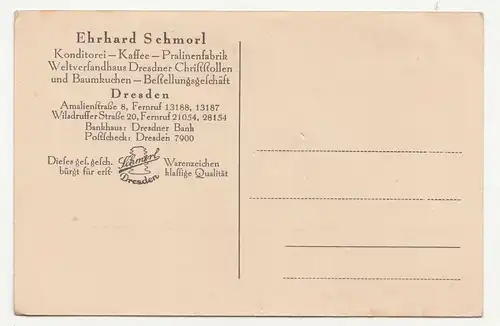 Ehrhard Schmorl
Konditorei – Kaffee – Pralinenfabrik
Weltversandhaus Dresdner Christstollen
und Baumkuchen – Bestellungsgeschäft
Dresden
Amalienstraße 8, Fernruf 13188, 13187
Wilsdruffer Straße 20, Fernruf 21054, 28154
Bankhaus: Dresdner Bank
Postscheck: Dresden 7900
Dieses ges. gesch. Schmorl Warenzeichen
bürgt für erst- Dresden klassige Qualität